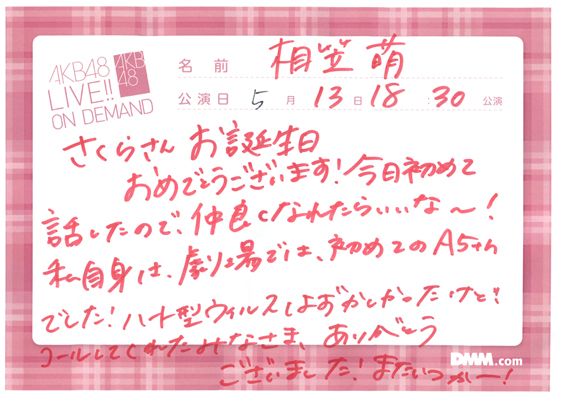 AKB48
LIVE!!
ON DEMAND
AKB
48
名前 相笠萌
公演日 5月13日18:30公演
さくらさん お誕生日
おめでとうございます!今日初めて
話したので、仲良くなれたらいいな〜!
私自身は、劇場では、初めてのA5さん
でした!ハート型ウィルスはずかしかったけど!!
コールしてくれたみなさま、ありがとう
ございました!またいつかー!
DMM.com